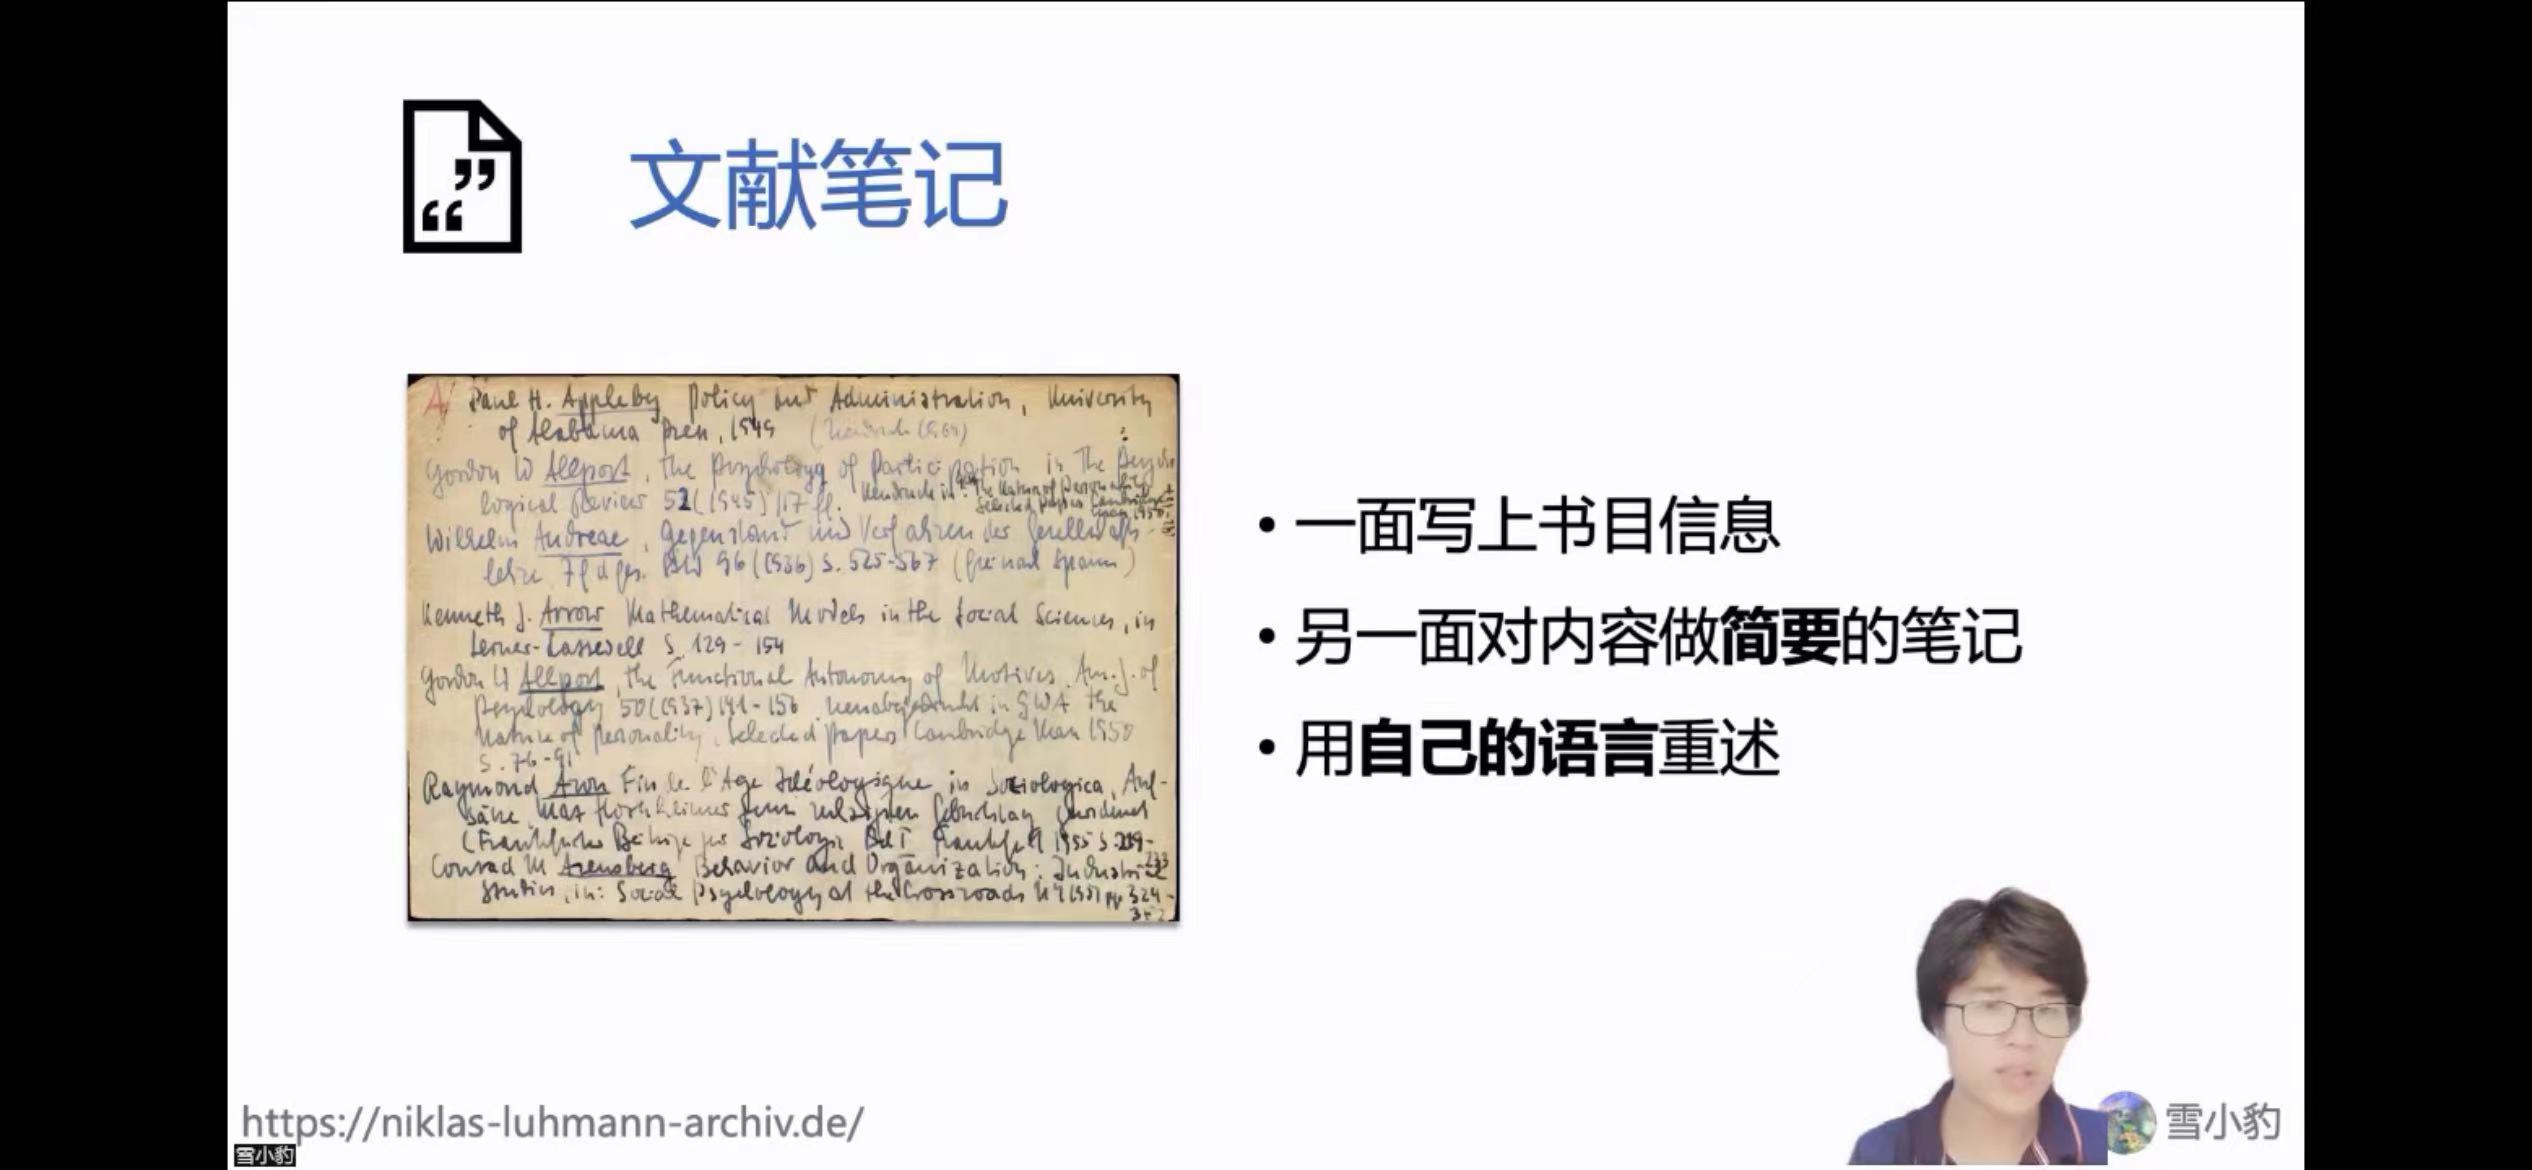 文献笔记
A/ Paul H. Appleby Policy and Administration, University
of Alabama Press, 1949
Gordon W Allport, the Psychology of Participation in The Psycho
logical Review 52 (1945) 117 ff.
Selected papers Cambridge
1950
Wilhelm Andreae, Gegenstand und Verfahren der Gesellschafts-
lehre 96 (1936) S. 525-567
Kenneth J. Arrow Mathematical Models in the Social Sciences, in
Lerner-Lasswell S. 129 - 154
Gordon W Allport, the Functional Autonomy of Motives, Am. J. of
Psychology 50 (1937) 141 - 156 in GWA the
Nature of Personality, Selected papers Cambridge 1950
S. 76-91
Raymond Aron Fin de l'Age Idéologique in Sociologica, Auf-
sätze, Max Horkheimer zum Geburtstag gewidmet
(Frankfurter Beiträge zur Soziologie Bd I Frankfurt 1955 S. 219-
233
Conrad M Arensberg Behavior and Organization: Industrial
Studies, in: Social Psychology at the Crossroads pp 324-
352
• 一面写上书目信息
• 另一面对内容做简要的笔记
• 用自己的语言重述
https://niklas-luhmann-archiv.de/
雪小豹
雪小豹